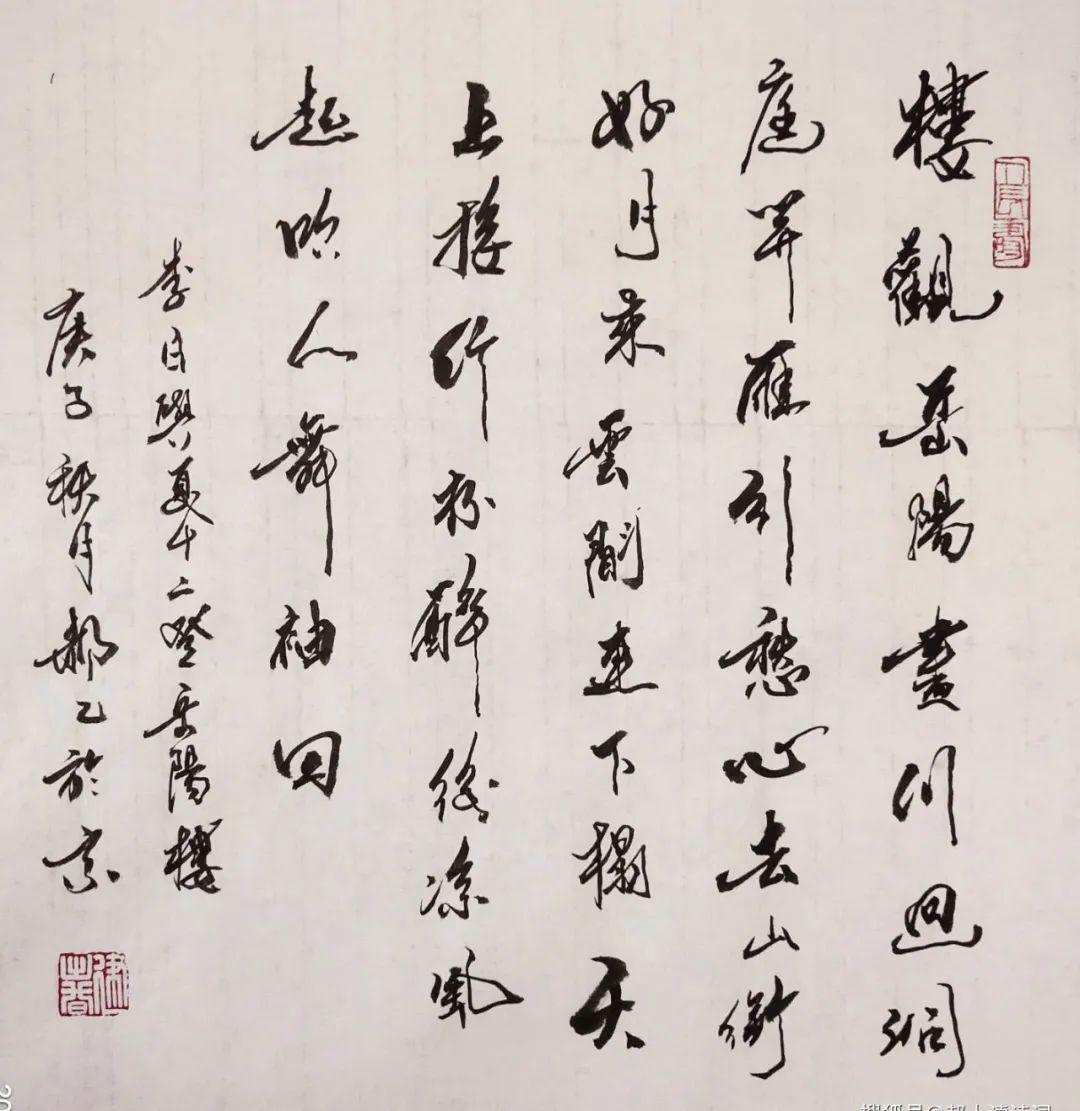 樓觀岳陽盡川迴洞
庭开雁引愁心去山銜
好月来雲間連下榻天
上接行杯醉後凉風
起吹人舞袖回
李白與夏十二登岳陽樓
庚子秋月郝乙於京